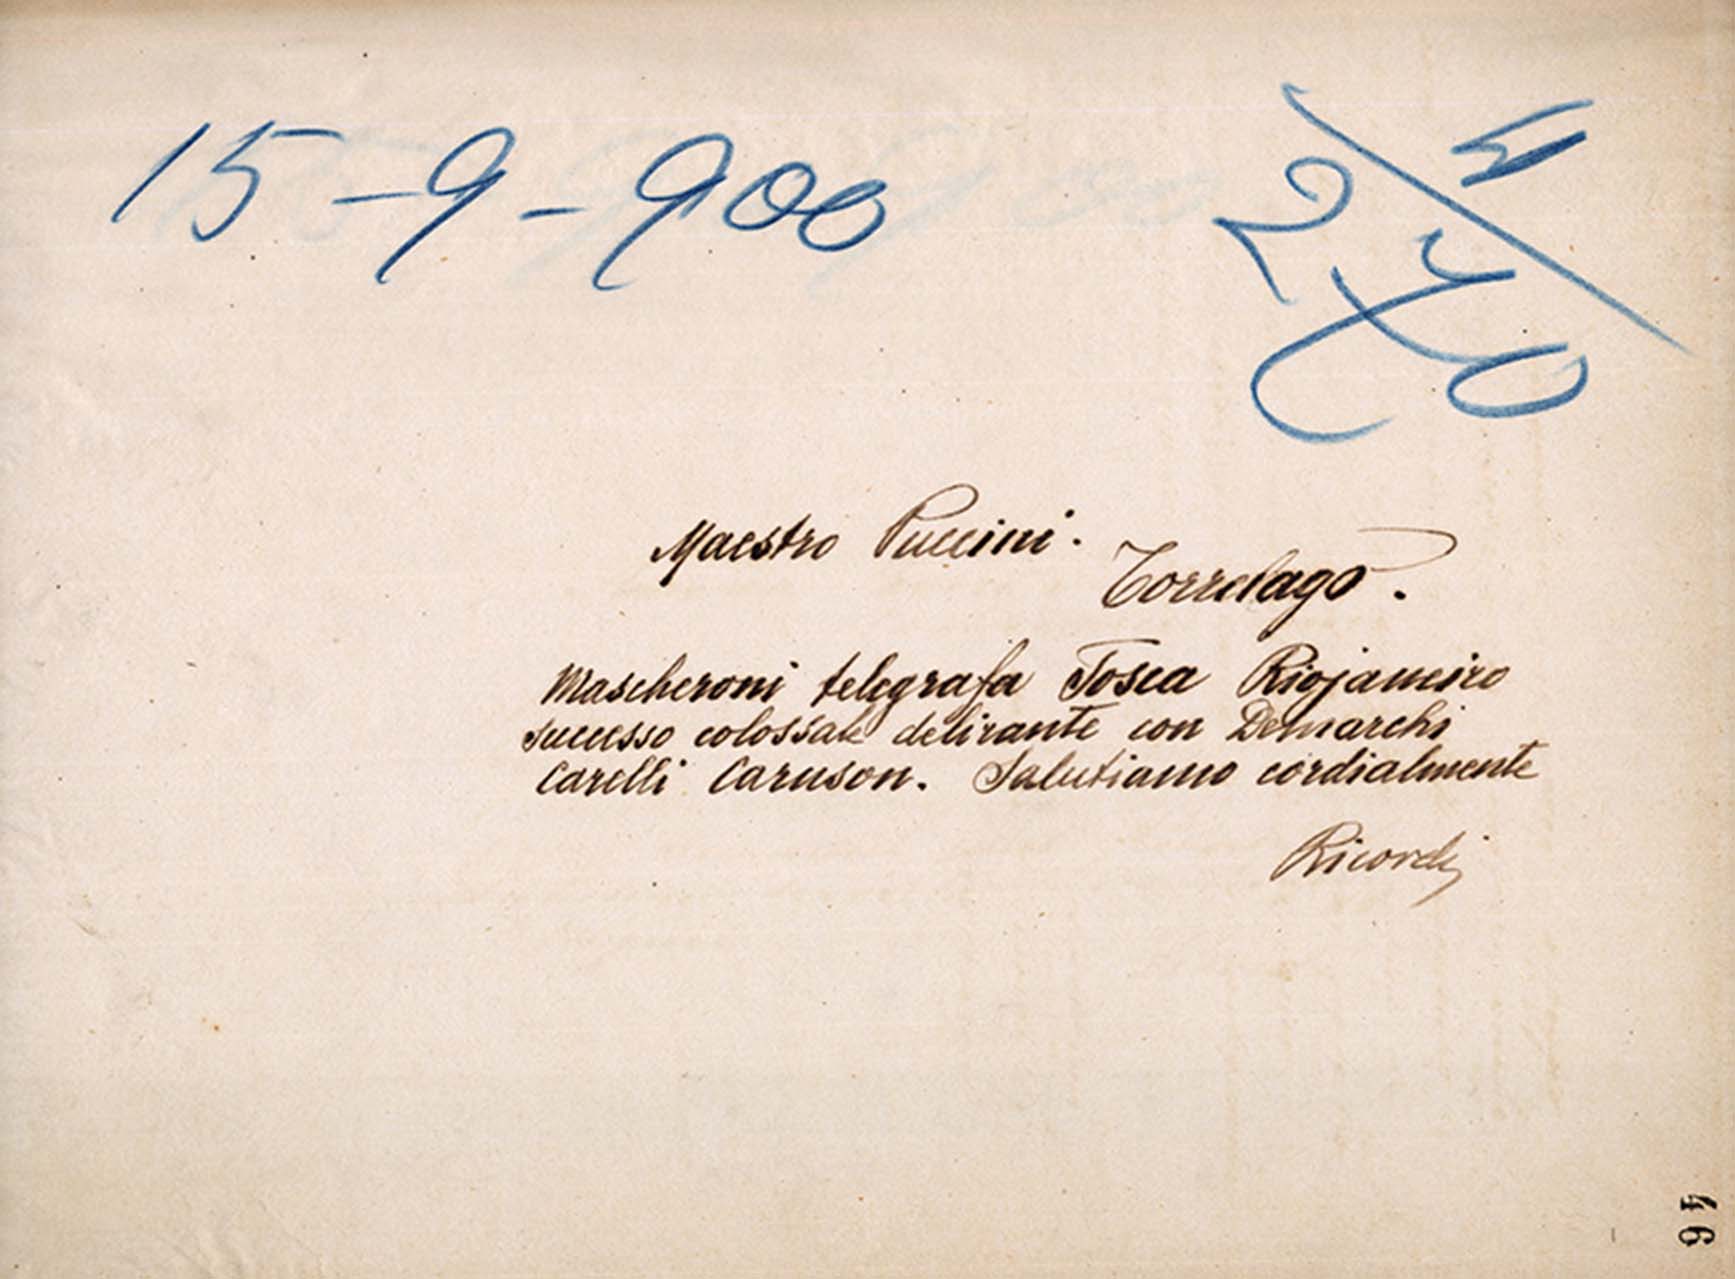 15-9-900
Maestro Puccini.
Torrelago.
Mascheroni telegrafa Tosca Riojaneiro
successo colossale delirante con Demarchi
Carelli Caruson. Salutiamo cordialmente
Ricordi
46